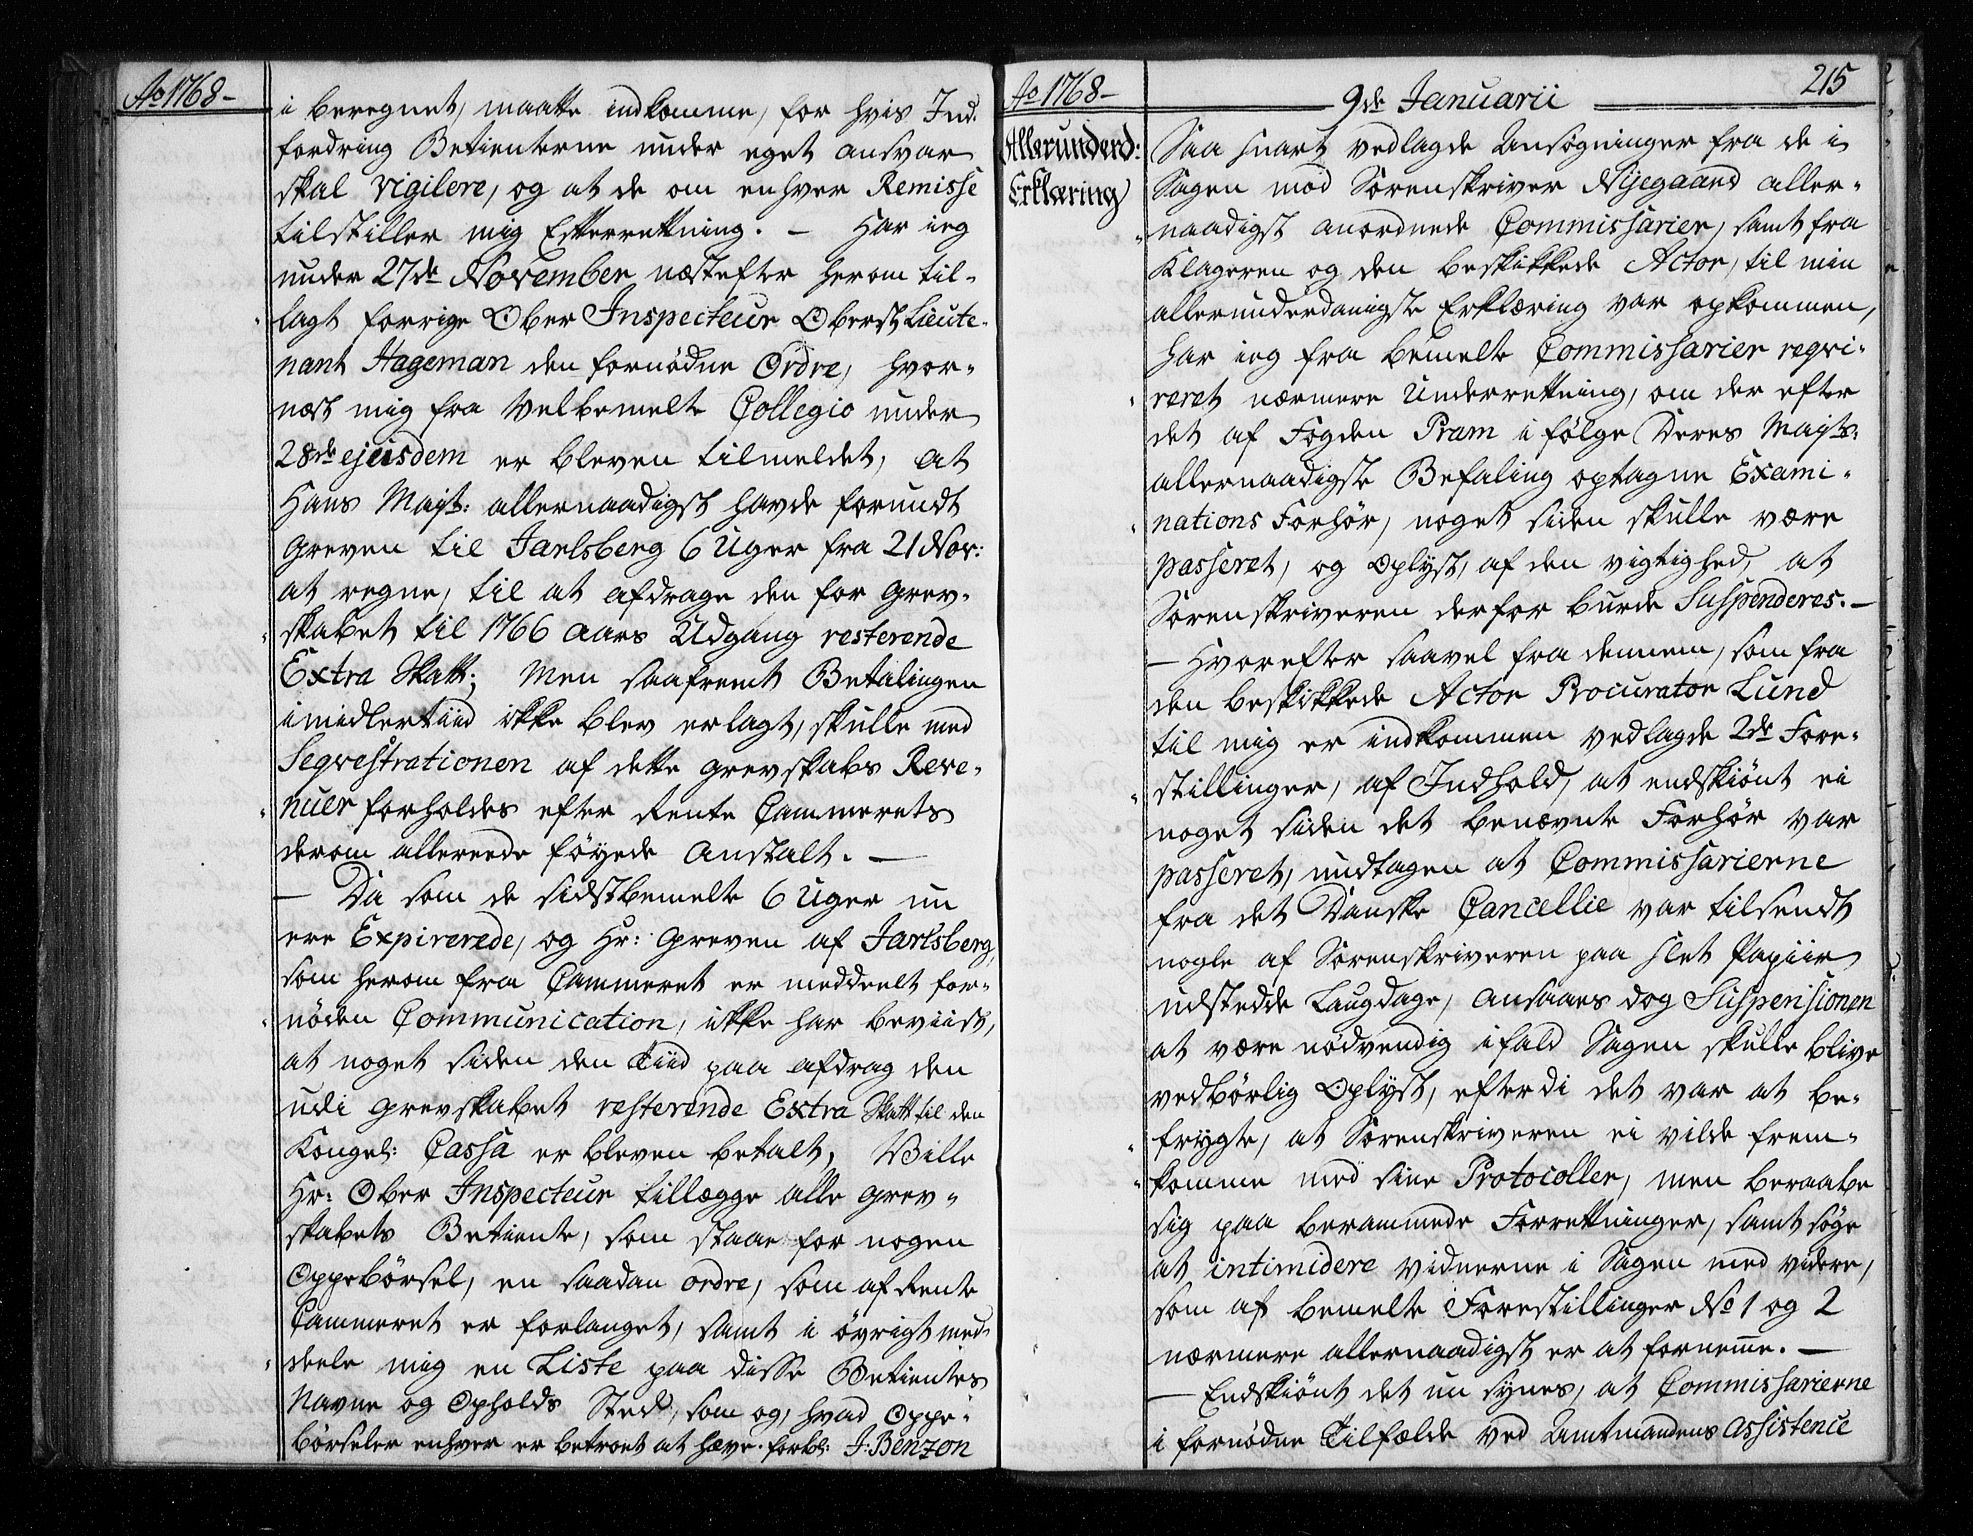 Ao 1768-
i beregnet, maatte indkomme, for hvis Ind-
fordring Betienterne under eget ansvar
skal vigilere, og at de om enhver Remisse
tilstiller mig Efterretning. - Har ieg
under 27de November næstefter herom til-
lagt forrige Ober Inspecteur Oberst Lieute-
nant Hageman den fornødne Ordre, hvor-
næst mig fra Velbemelte Collegio under
28de ejusdem er bleven tilmeldet, at
Hans Mayt: allernaadigst havde forundt
Greven til Jarlsberg 6 Uger fra 21 Nov:
at regne, til at afdrage den for Grev-
skabet til 1766 Aars Udgang resterende
Extra Skatt; Men saafremt Betalingen
imidlertiid ikke blev erlagt, skulle med
Seqvestrationen af dette Grevskabs Reve-
nuer forholdes efter Rente Cammerets
derom allereede føyede Anstalt. -
- Da som de sidstbemelte 6 Uger nu
ere Expirerede, og Hr: Greven af Jarlsberg,
som herom fra Cammeret er meddeelt for-
nøden Communication, ikke har beviist,
at noget siden den Tiid paa afdrag den
udi Grevskabet resterende Extra Skatt til den
Kongel: Cassa er bleven betalt, Ville
Hr: Ober Inspecteur tillægge alle Grev-
skabets Betiente, som staar for nogen
Oppebørsel, en saadan ordre, som af Rente
Cammeret er forlanget, samt i øvrigt med-
deele mig en Liste paa disse Betientes
Navne og Opholds Sted, som og, hvad Oppe-
børseler enhver er betroet at hæve. forbl: J: Benzon
Ao 1768-
9de Januarii
215
Allerunderd:
Erklæring
Saa snart vedlagde Ansøgninger fra de i
Sagen mod Sorenskriver Nijegaard aller-
naadigst anordnede Commissarier, samt fra
Klageren og den beskikkede Actor, til min
allerunderdanigste Erklæring var opkommen,
har ieg fra bemelte Commissarier reqvi-
reret nærmere Underretning, om der efter
det af Fogden Pram i følge Deres Mayts:
allernaadigste Befaling optagne Exami-
nations Forhør, noget siden skulle være
passeret, og Oplyst, af den vigtighed, at
Sorenskriveren derfor burde Suspenderes. -
- Hvorefter saavel fra dennem, som fra
den beskikkede Actor Procurator Lund
til mig er indkommen vedlagde 2de Fore-
stillinger, af Indhold, at endskiønt ei
noget siden det benævnte Forhør var
passeret, undtagen at Commissarierne
fra det Danske Cancellie var tilsendt
nogle af Sorenskriveren paa slet Papiir
udstedde Laugdage, Ansaaes dog Suspensionen
at være nødvendig ifald Sagen skulle blive
vedbørlig Oplyst, efterdi det var at be-
frygte, at Sorenskriveren ei vilde frem-
komme med sine Protocoller, men beraabe
sig paa berammede Forretninger, samt søge
at intimidere vidnerne i Sagen med videre,
som af bemelte Forestillinger No 1 og 2
nærmere allernaadigst er at fornemme. -
- Endskiønt det nu synes, at Commissarierne
i fornødne Tilfælde ved Amtmandens Assistence